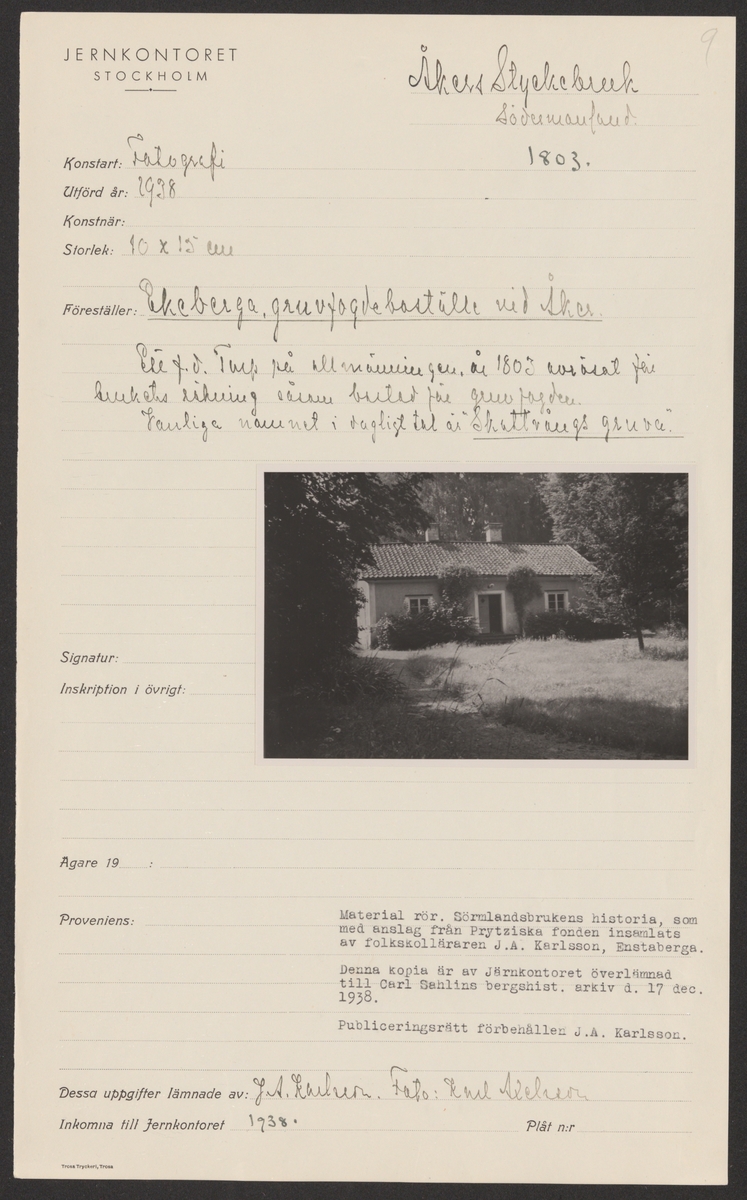 9
JERNKONTORET
STOCKHOLM
Åkers Styckebruk
Södermanland.
1803.
Konstart: Fotografi
Utförd år: 1938
Konstnär:
Storlek: 10 x 15 cm
Föreställer: Ekeberga, gruvfogdeboställe vid Åker.
Ett f.d. Torp på allmänningen, år 1803 avröjat för
brukets räkning såsom bostad för gruvfogden.
Vanliga namnet i dagligt tal är "Skottvångs gruva".
Signatur:
Inskription i övrigt:
Ägare 19 :
Proveniens:
Material rör. Sörmlandsbrukens historia, som
med anslag från Prytziska fonden insamlats
av folkskolläraren J.A. Karlsson, Enstaberga.
Denna kopia är av Järnkontoret överlämnad
till Carl Sahlins bergshist. arkiv d. 17 dec.
1938.
Publiceringsrätt förbehållen J.A. Karlsson.
Dessa uppgifter lämnade av: J.A. Karlsson. Foto: Karl Axelsson
Inkomna till Jernkontoret 1938.
Plåt n:r
Trosa Tryckeri, Trosa